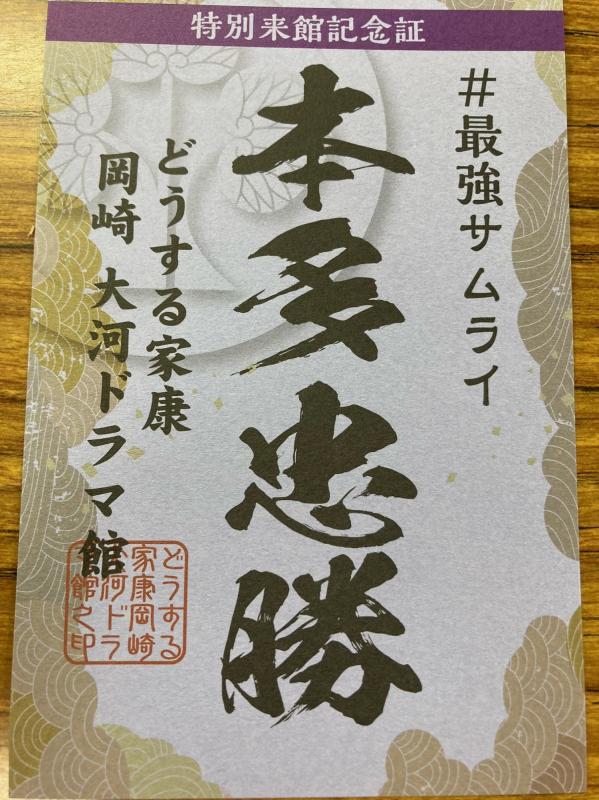 特別来館記念証
#最強サムライ
本多忠勝
どうする家康
岡崎 大河ドラマ館
どうする
家康岡崎
大河ドラ
マ館之印